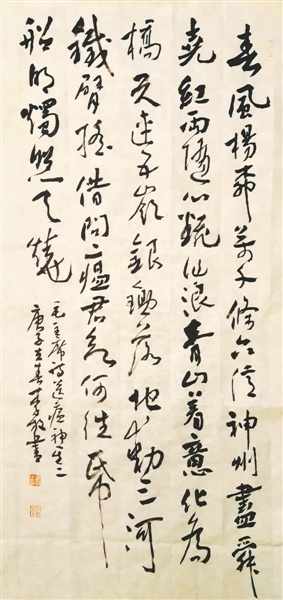 春風楊柳萬千條六億神州盡舜
堯紅雨隨心翻作浪青山着意化為
橋天連五嶺銀鋤落地動三河
鐵臂搖借問瘟君欲何往紙
船明燭照天燒
毛主席詩送瘟神其二
庚子立春李書